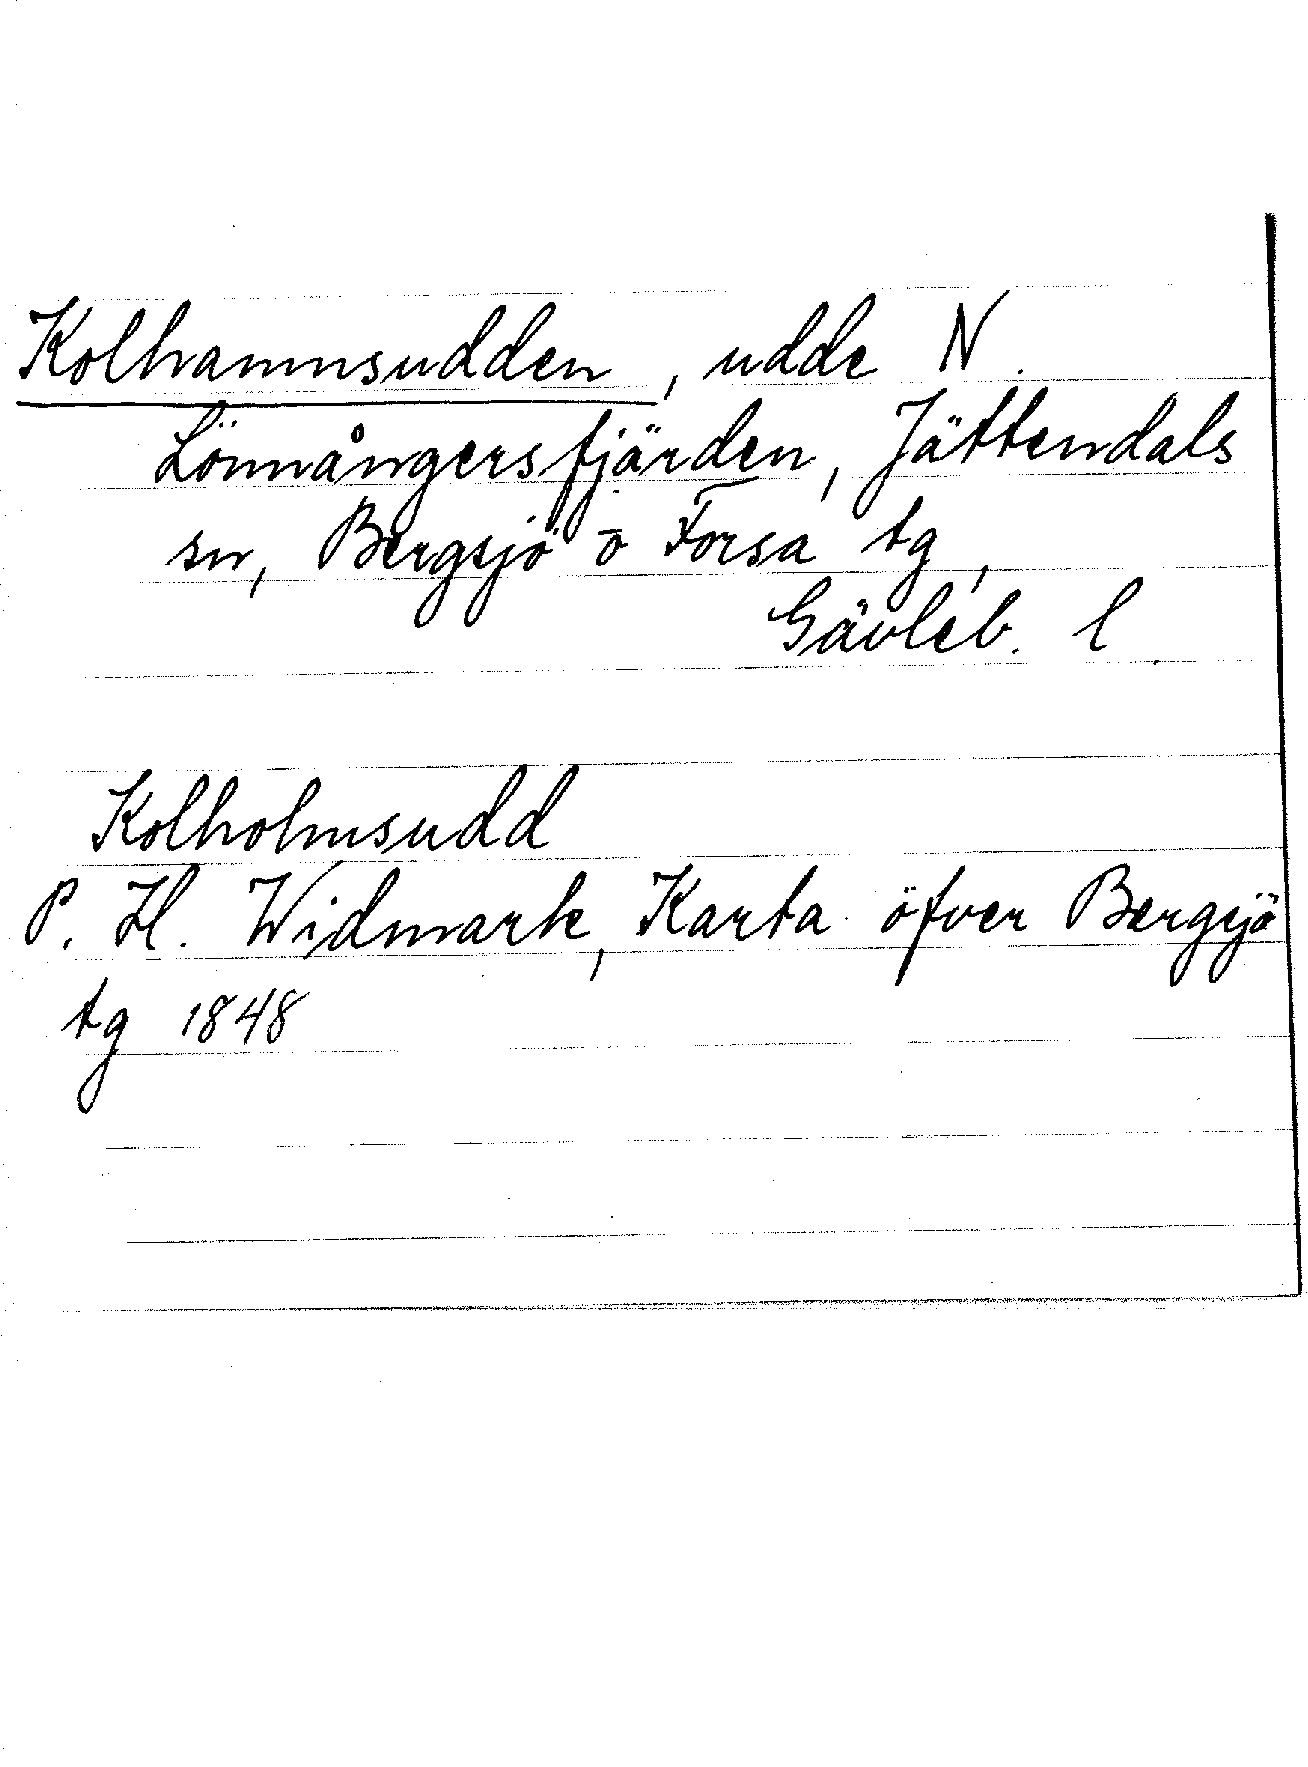 Kolhamnsudden, udde N.
Lönnångersfjärden, Jättendals
sn, Bergsjö o Forsa tg,
Gävleb. l
Kolholmsudd
P. H. Widmark, Karta öfver Bergsjö
tg 1848